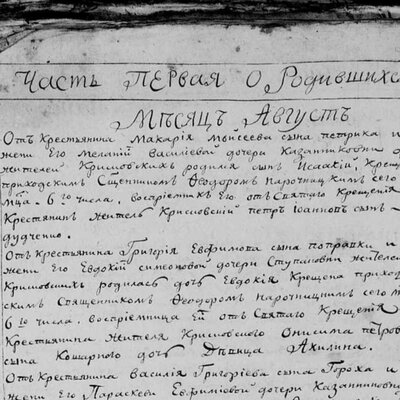 Часть Первая О Родившихс
Мѣсяцъ Августъ
Отъ Крестьянина Макарія Мойсеева сына петрика и
жени Его Меланіи Василіевой дочери
жителей Крисовскихъ родился сынъ Исаакій, Крещ
приходскимъ Священникомъ Феодоромъ Нарочницкимъ сего
мца. 6го числа, воспріемникъ Его отъ Святаго Крещенія
Крестянинъ житель Крисовскій петръ Іоанновъ сынъ
дудченко.
Отъ Крестьянина Григорія Евфимова сына поправки и
жени Его Евдокіи симеоновой дочери Ступаковни жителе
Крисовскихъ родилась дочь Евдокія Крещена прихо
скимъ Священникомъ Феодоромъ Нарочницкимъ сего м
6го числа, воспріемница Ей отъ Святаго Крещенія
Крестьянина жителя Крисовского Онисима петров
сына Кошарного дочь Дѣвица Акилина.
Отъ Крестьянина Василія Григоріева сына Гороха и
жени Его Параскеви Евфиміовой дочери